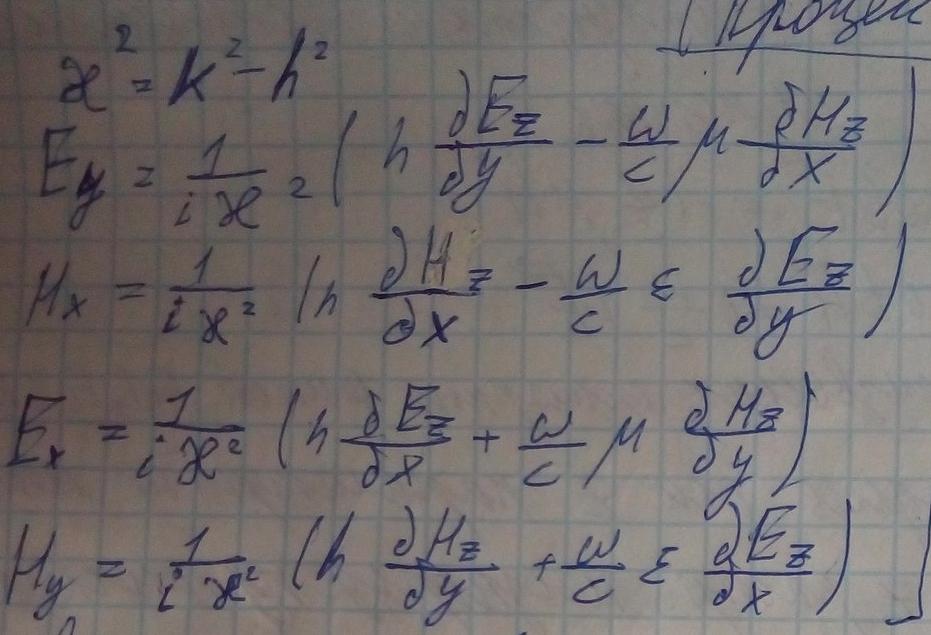 [Процен
æ² = k² - h²
E_y = 1/(i æ²) (h ∂E_z/∂y - ω/c μ ∂H_z/∂x)
H_x = 1/(i æ²) (h ∂H_z/∂x - ω/c ε ∂E_z/∂y)
E_x = 1/(i æ²) (h ∂E_z/∂x + ω/c μ ∂H_z/∂y)
H_y = 1/(i æ²) (h ∂H_z/∂y + ω/c ε ∂E_z/∂x)]